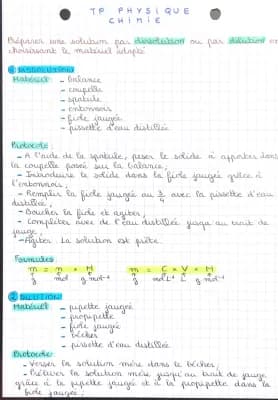 TP PHYSIQUE
CHIMIE
Préparer une solution par dissolution ou par dilution en
choisissant le matériel adapté
① DISSOLUTION
Matériel : - balance
- coupelle
- spatule
- entonnoir
- fiole jaugée
- pissette d'eau distillée
Protocole :
- A l'aide de la spatule, peser le solide à apporter dans
la coupelle posée sur la balance,
- Introduire le solide dans la fiole jaugée grâce à
l'entonnoir,
- Remplir la fiole jaugée au 3/4 avec la pissette d'eau
distillée,
- Boucher la fiole et agiter,
- Compléter avec de l'eau distillée jusqu'au trait de
jauge,
- Agiter. La solution est prête.
Formules
m = n × M m = C × V × M
g mol g.mol⁻¹ g mol.L⁻¹ L g.mol⁻¹
② DILUTION
Matériel - pipette jaugée
- propipette
- fiole jaugée
- bécher
- pissette d'eau distillée
Protocole :
- Verser la solution mère dans le bécher,
- Prélever la solution mère jusqu'au trait de jauge
grâce à la pipette jaugée et à la propipette dans la
fiole jaugée,